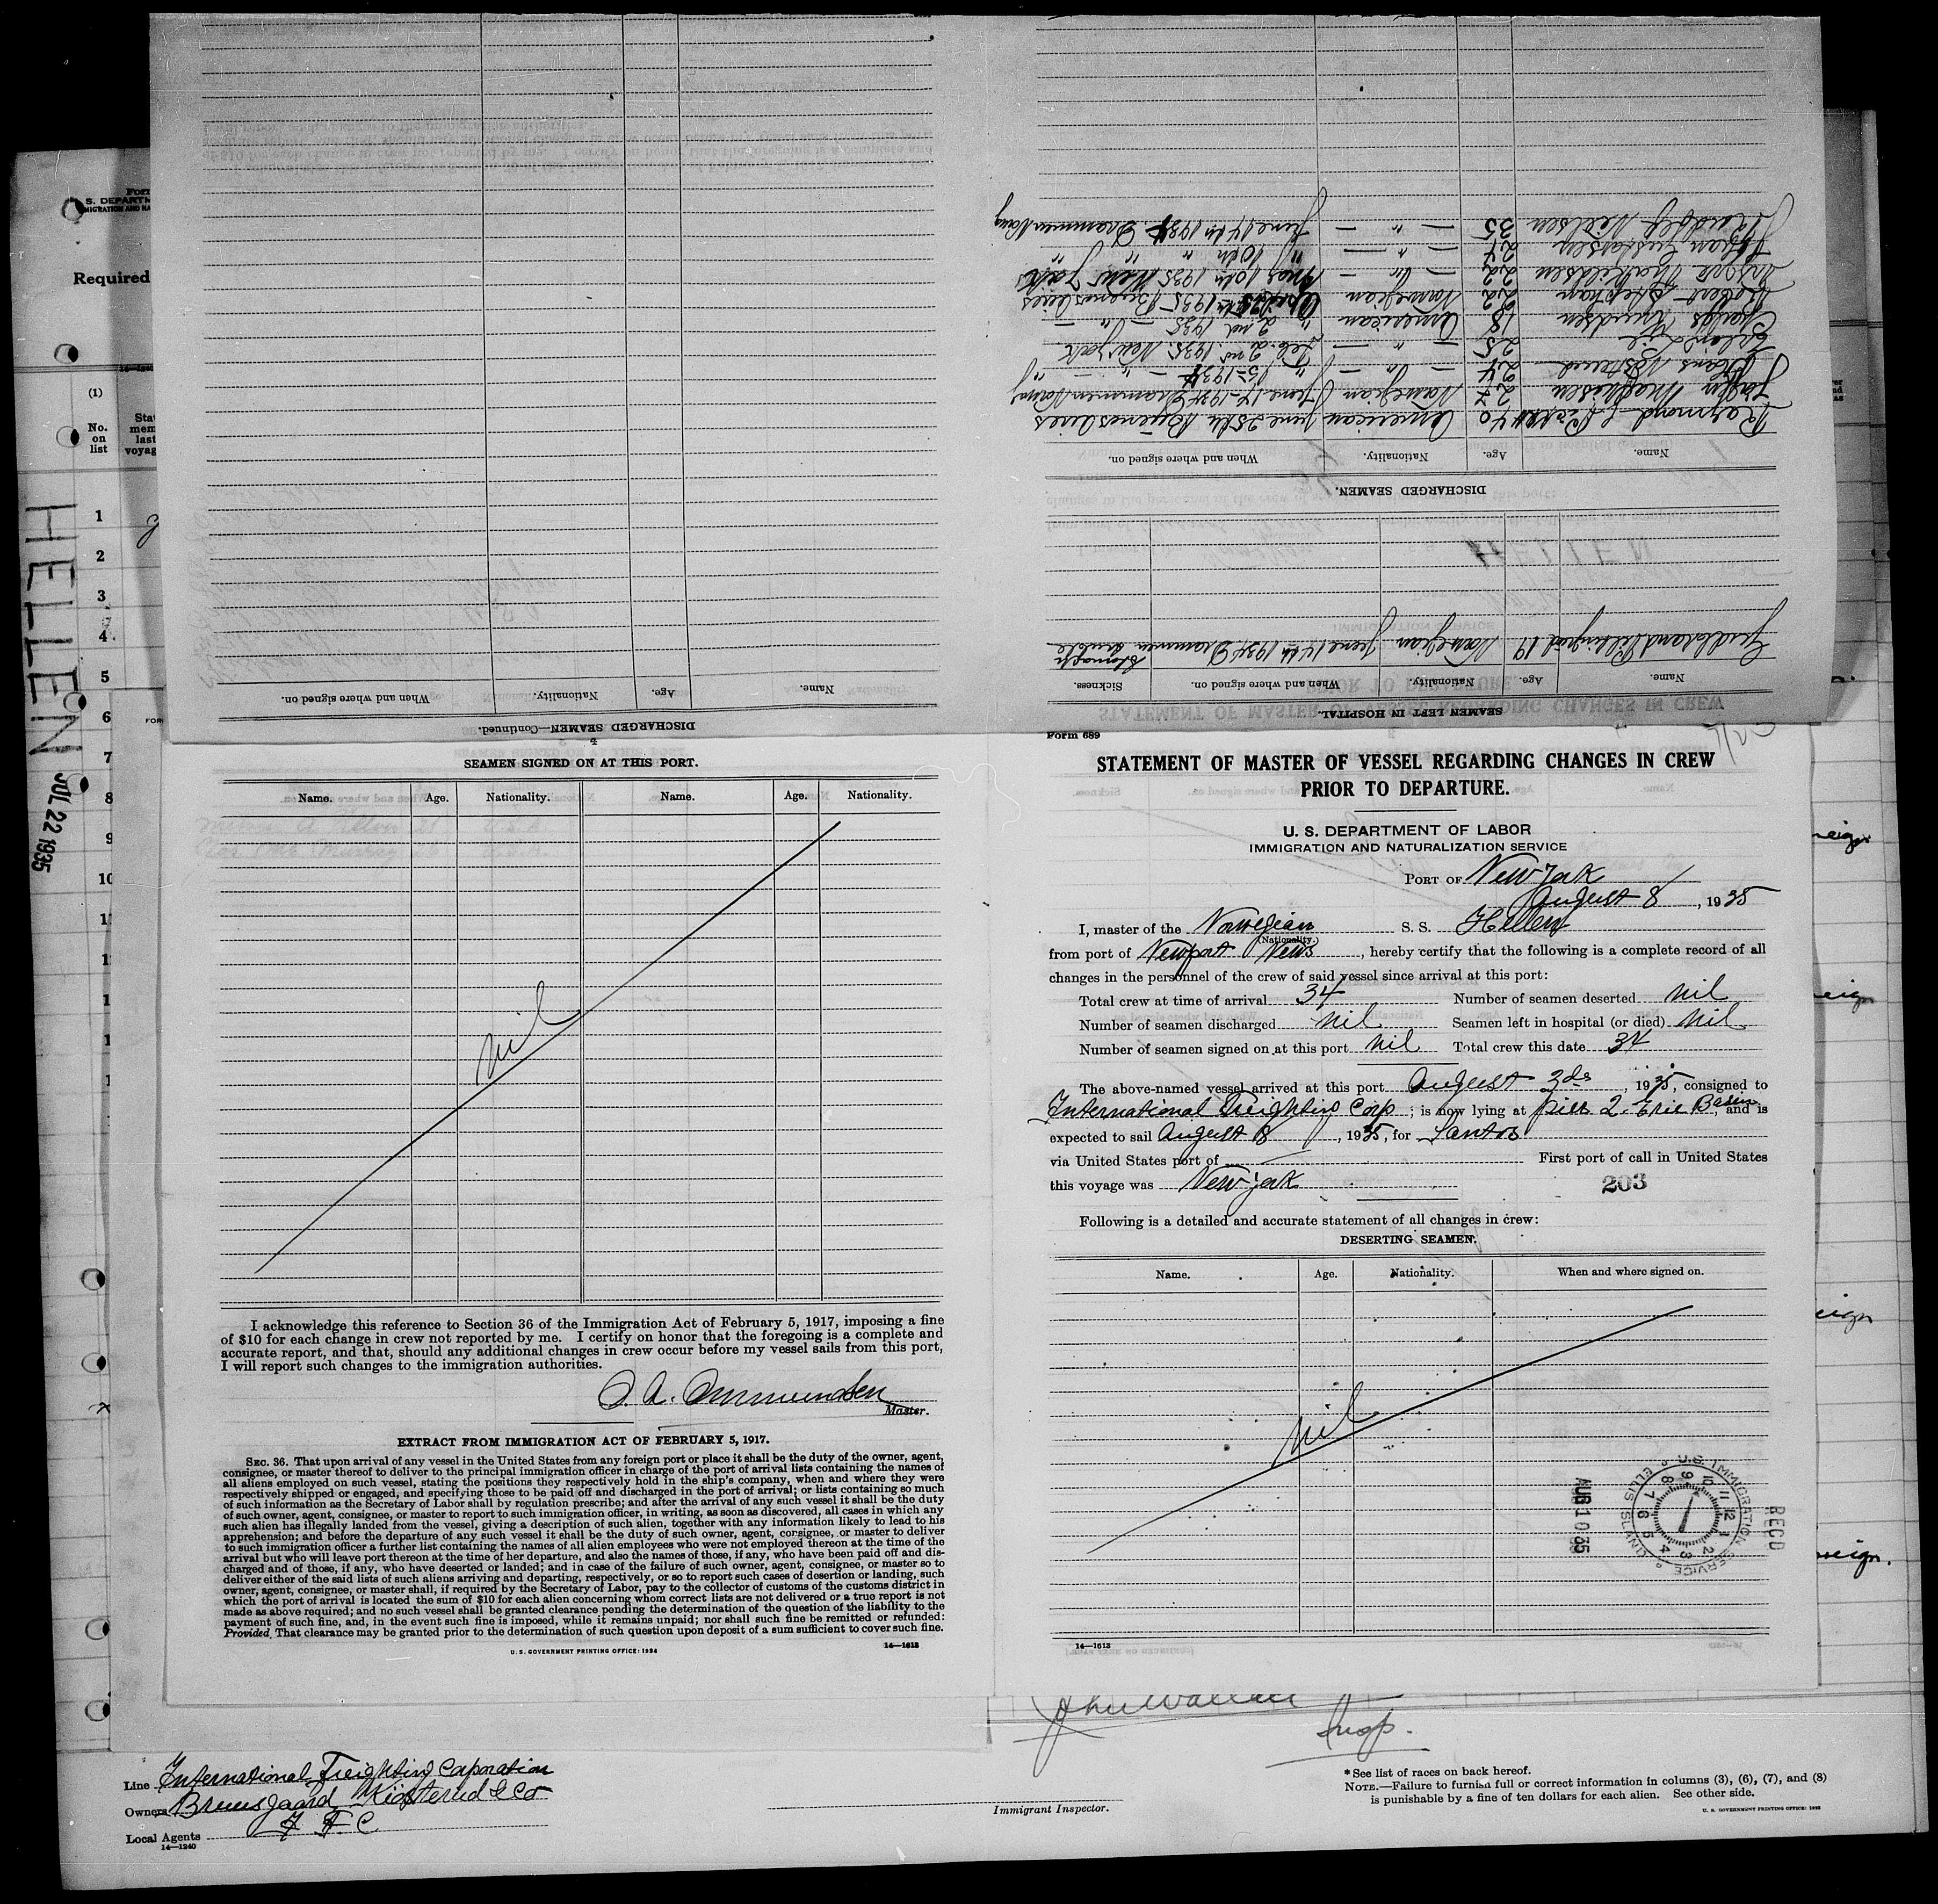 Form 689
STATEMENT OF MASTER OF VESSEL REGARDING CHANGES IN CREW
PRIOR TO DEPARTURE.
U. S. DEPARTMENT OF LABOR
IMMIGRATION AND NATURALIZATION SERVICE
PORT OF New York
August 8, 1935
I, master of the Norwegian S. S. Hellen
(Nationality.)
from port of Newport News, hereby certify that the following is a complete record of all
changes in the personnel of the crew of said vessel since arrival at this port:
Total crew at time of arrival 34 Number of seamen deserted nil
Number of seamen discharged nil Seamen left in hospital (or died) nil
Number of seamen signed on at this port nil Total crew this date 34
The above-named vessel arrived at this port August 3de, 1935, consigned to
International Freighting Corp; is now lying at pier 2. Erie Basin, and is
expected to sail August 8, 1935, for Santos
via United States port of First port of call in United States
this voyage was New York
203
Following is a detailed and accurate statement of all changes in crew:
DESERTING SEAMEN.
Name. Age. Nationality. When and where signed on.
nil
REC'D
U.S. IMMIGRATION SERVICE
ELLIS ISLAND
AUG 10 35
14—1613
SEAMEN SIGNED ON AT THIS PORT.
Name. Age. Nationality. Name. Age. Nationality.
nil
I acknowledge this reference to Section 36 of the Immigration Act of February 5, 1917, imposing a fine
of $10 for each change in crew not reported by me. I certify on honor that the foregoing is a complete and
accurate report, and that, should any additional changes in crew occur before my vessel sails from this port,
I will report such changes to the immigration authorities.
Master.
EXTRACT FROM IMMIGRATION ACT OF FEBRUARY 5, 1917.
SEC. 36. That upon arrival of any vessel in the United States from any foreign port or place it shall be the duty of the owner, agent,
consignee, or master thereof to deliver to the principal immigration officer in charge of the port of arrival lists containing the names of
all aliens employed on such vessel, stating the positions they respectively hold in the ship's company, when and where they were
respectively shipped or engaged, and specifying those to be paid off and discharged in the port of arrival; or lists containing so much
of such information as the Secretary of Labor shall by regulation prescribe; and after the arrival of any such vessel it shall be the duty
of such owner, agent, consignee, or master to report to such immigration officer, in writing, as soon as discovered, all cases in which any
such alien has illegally landed from the vessel, giving a description of such alien, together with any information likely to lead to his
apprehension; and before the departure of any such vessel it shall be the duty of such owner, agent, consignee, or master to deliver
to such immigration officer a further list containing the names of all alien employees who were not employed thereon at the time of the
arrival but who will leave port thereon at the time of her departure, and also the names of those, if any, who have been paid off and dis-
charged and of those, if any, who have deserted or landed; and in case of the failure of such owner, agent, consignee, or master so to
deliver either of the said lists of such aliens arriving and departing, respectively, or so to report such cases of desertion or landing, such
owner, agent, consignee, or master shall, if required by the Secretary of Labor, pay to the collector of customs of the customs district in
which the port of arrival is located the sum of $10 for each alien concerning whom correct lists are not delivered or a true report is not
made as above required; and no such vessel shall be granted clearance pending the determination of the question of the liability to the
payment of such fine, and, in the event such fine is imposed, while it remains unpaid; nor shall such fine be remitted or refunded:
Provided, That clearance may be granted prior to the determination of such question upon deposit of a sum sufficient to cover such fine.
U. S. GOVERNMENT PRINTING OFFICE: 1934 14—1613
SEAMEN LEFT IN HOSPITAL.
Name. Age. Nationality. When and where signed on. Sickness.
19 Norwegian June 14th 1934 Drammen
DISCHARGED SEAMEN.
Name. Age. Nationality. When and where signed on.
Raymond 40 American June 25th Buenos Aires
Mathisen 27 Norwegian June 14-1934 Drammen Norway
24 — " — " 15-1934 — " —
25 — " — Feb. 2nd 1935. New York
Knudsen 18 American " 2nd 1935 — " —
Robert Stephan 22 Norwegian 1935 Buenos Aires
22 — " — May 10th 1935 New York
Johan Gustavsen 24 — " — " 10th " "
Neilsen 35 — " — June 14th 1934 Drammen Norway
DISCHARGED SEAMEN—Continued.
Name. Age. Nationality. When and where signed on.
4
HELLEN
JUL 22 1935
Required
(1)
No.
on
list
1
2
3
4
5
6
7
8
9
10
Line International Freighting Corporation
Owners
Local Agents I F C
14—1240
Insp.
Immigrant Inspector.
* See list of races on back hereof.
NOTE.—Failure to furnish full or correct information in columns (3), (6), (7), and (8)
is punishable by a fine of ten dollars for each alien. See other side.